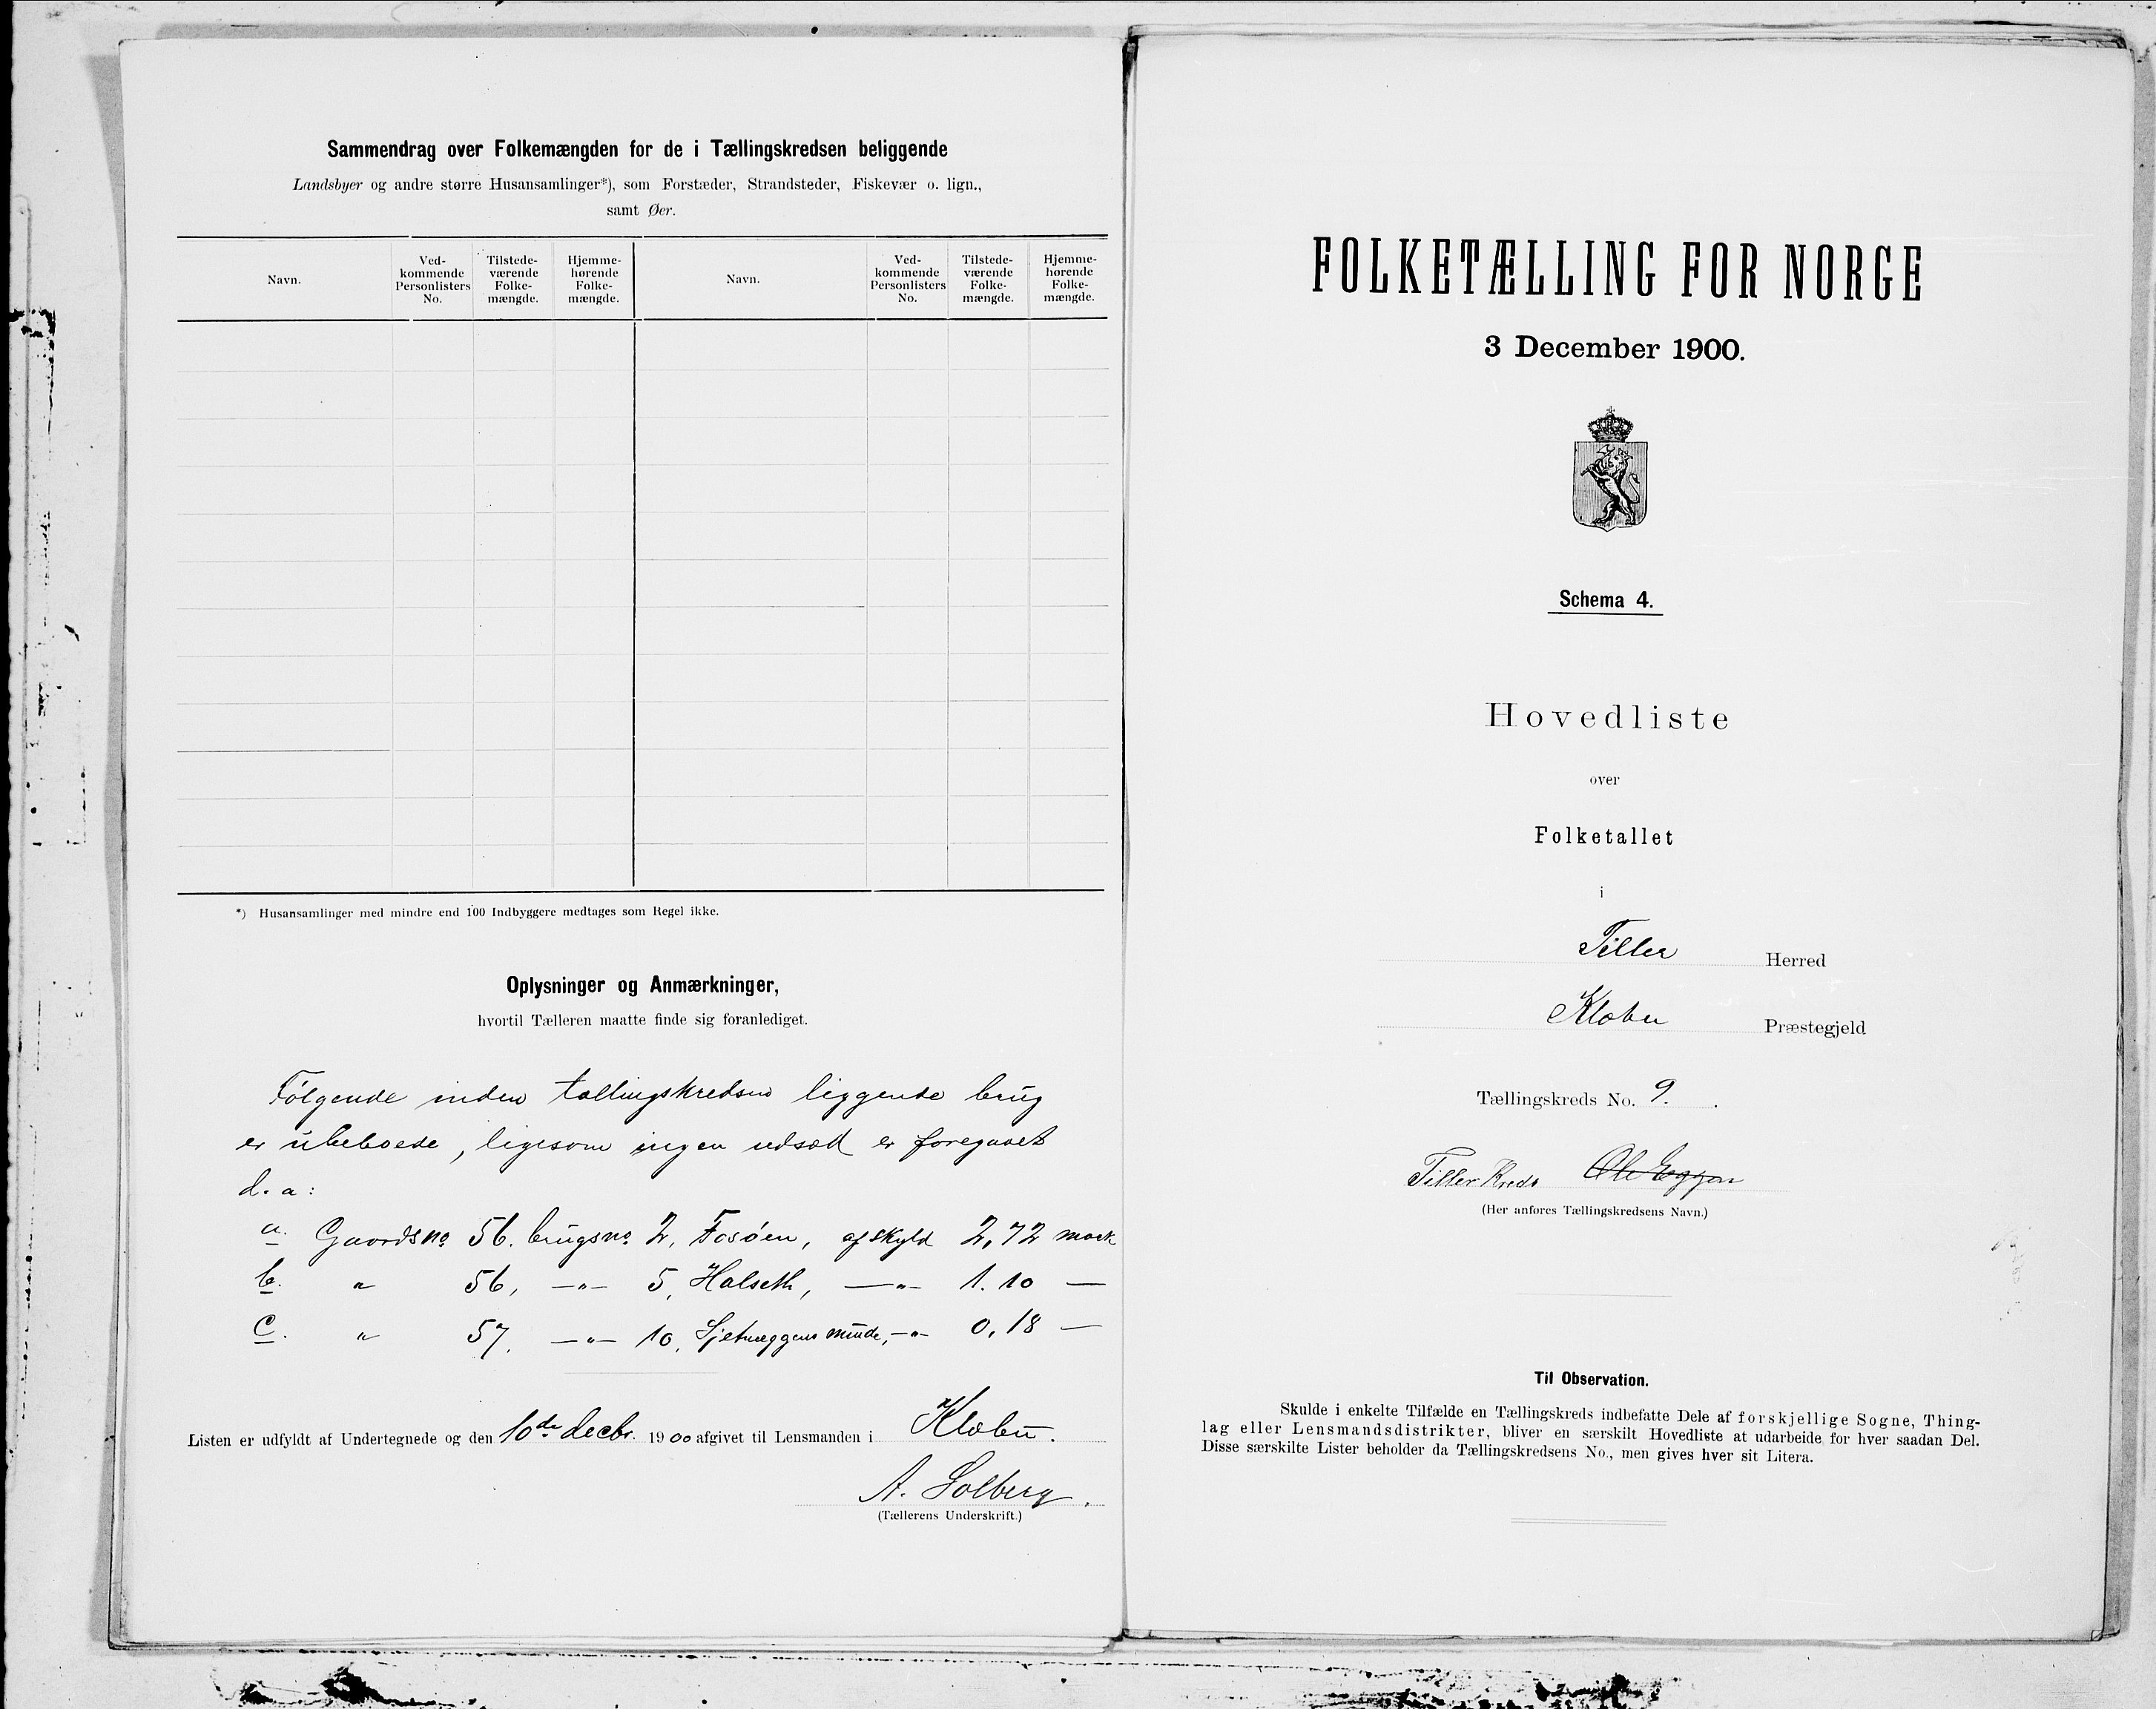 Sammendrag over Folkemængden for de i Tællingskredsen beliggende
Landsbyer og andre større Husansamlinger*), som Forstæder, Strandsteder, Fiskevær o. lign.,
samt Øer.
Navn. Ved-kommende Personlisters No. Tilstede-værende Folke-mængde. Hjemme-hørende Folke-mængde. Navn. Ved-kommende Personlisters No. Tilstede-værende Folke-mængde. Hjemme-hørende Folke-mængde.
*) Husansamlinger med mindre end 100 Indbyggere medtages som Regel ikke.
Oplysninger og Anmærkninger,
hvortil Tælleren maatte finde sig foranlediget.
Følgende inden tællingskredsen liggende brug
er ubeboede, ligesom ingen udsæd er foregaaet
d. a:
a. Gaardsno 56. brugsno 2, Fosøen, af skyld 2,72 mark
b. " 56, —"— 5, Halseth, —"— 1.10 —
c. " 57. —"— 10, Sjetneggens minde, —"— 0,18 —
Listen er udfyldt af Undertegnede og den 10de decbr. 1900 afgivet til Lensmanden i Klæbu.
A. Solberg.
(Tællerens Underskrift.)
FOLKETÆLLING FOR NORGE
3 December 1900.
Schema 4.
Hovedliste
over
Folketallet
i
Tiller Herred
Klæbu Præstegjeld
Tællingskreds No. 9.
Tiller Kreds
(Her anføres Tællingskredsens Navn.)
Til Observation.
Skulde i enkelte Tilfælde en Tællingskreds indbefatte Dele af forskjellige Sogne, Thing-
lag eller Lensmandsdistrikter, bliver en særskilt Hovedliste at udarbeide for hver saadan Del.
Disse særskilte Lister beholder da Tællingskredsens No., men gives hver sit Litera.